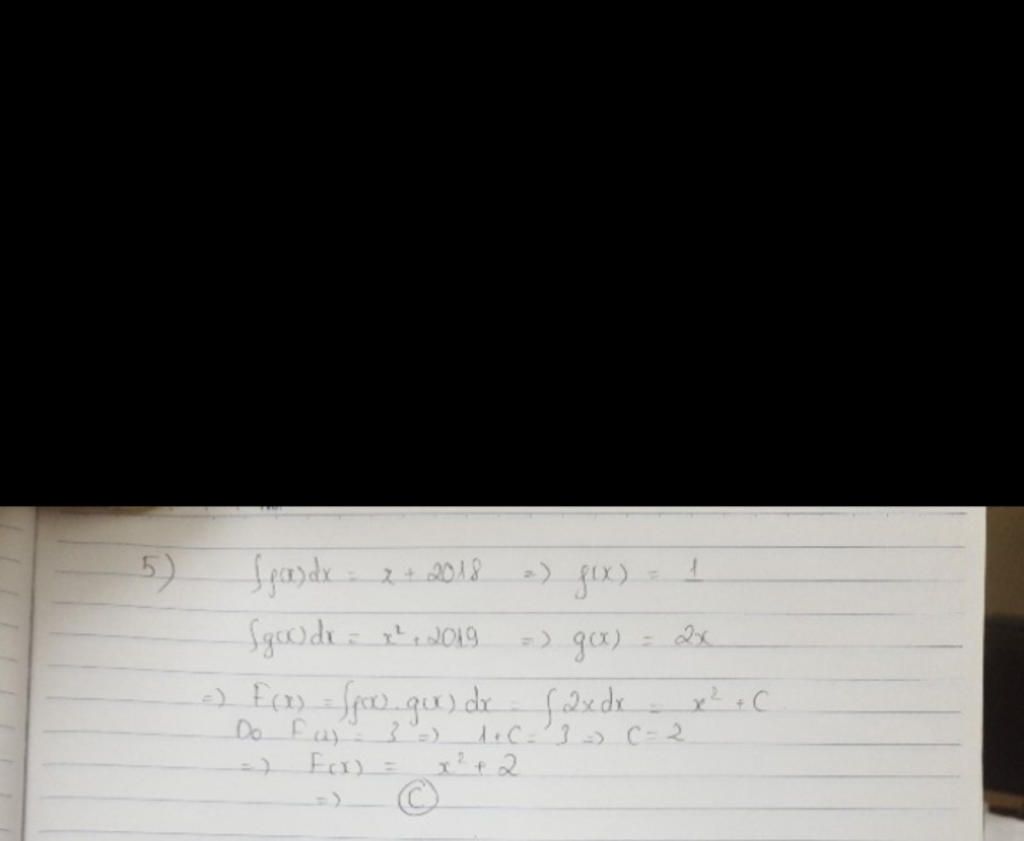 5) ∫f(x)dx = x + 2018 => f(x) = 1
∫g(x)dx = x² + 2019 => g(x) = 2x
=> F(x) = ∫f(x).g(x)dx = ∫2xdx = x² + C
Do F(1) = 3 => 1+C = 3 => C = 2
=> F(x) = x² + 2
=> C